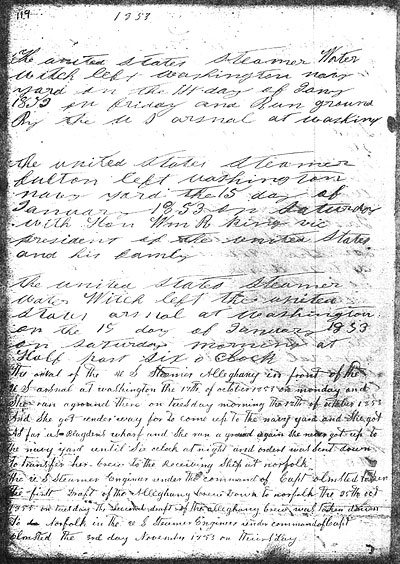 119 1853
The united states steamer Water
witch left washington navy
yard on the 14 day of Jany
1853 on Friday and Run ground
By the U S arsnal at washing
the united states steamer
fulton left washington
navy yard the 15 day of
January 1853 on Saturday
with Hon Wm R king vic
president of the united states
and his family
the united states steamer
water Witch left the united
states arsnal at washington
on the 15 day of January 1853
on saturday morning at
Half past six o clock
The arival of the U S Steamer Alleghany in front of the
U S arsnal at washington the 17th of october 1853 on monday and
She ran aground there on tuesday morning the 18th of october 1853
And She got under way for to come up to the navy yard and She got
As far as Blagdens wharf and She run a ground again She never got up to
the navy yard until Six oclock at night and orders was Sent down
to transfer her crew to the Receiving Ship at norfolk
the U S Steamer Engineer under the command of Capt olmsted taken
the first Draft of the Alleghany crew Down to norfolk the 25th oct
1853 on tuesday the Second draft of the alleghany crew was taken down
To Norfolk in the U S Steamer Engineer under command of Capt
olmsted the 3rd day November 1853 on thursday